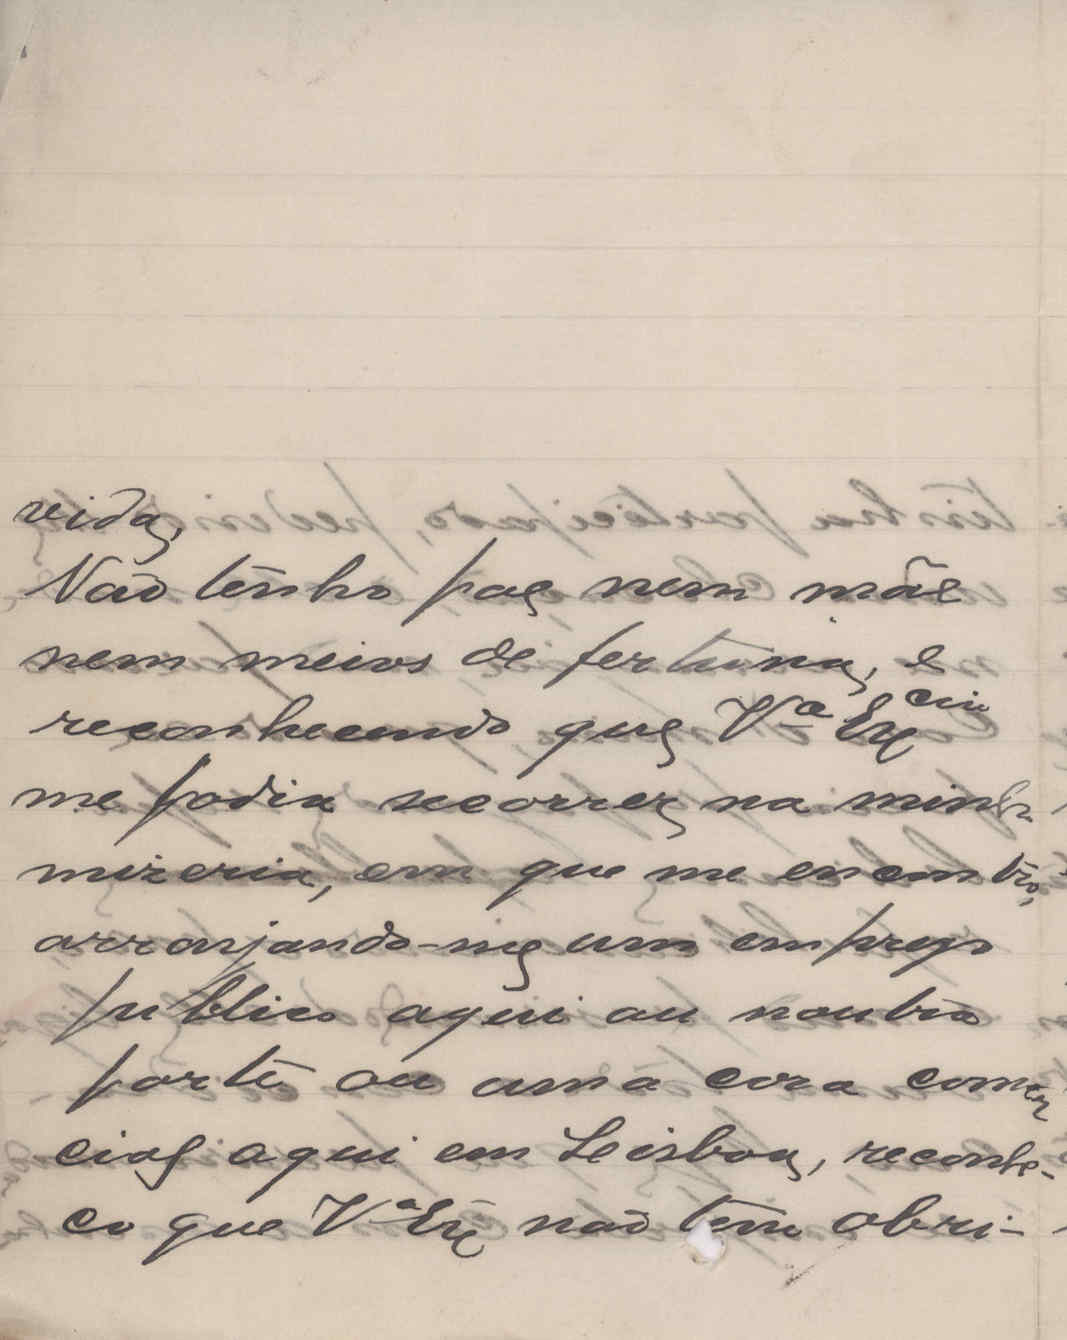 vida,
Não tenho pae nem mãe
nem meios de fertuna, e
reconhecendo que V.ª Ex.cia
me podia secorrer na minha
mizeria, em que me encontro,
arranjando-me um emprego
publico aqui ou noutra
parte ou uma coza comer
cial aqui em Leisboa, reconhe-
co que V.ª Ex. não tem obri-